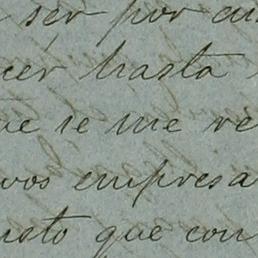 ser por cu
cer hasta
ue se me re
vos empresa
usto que con